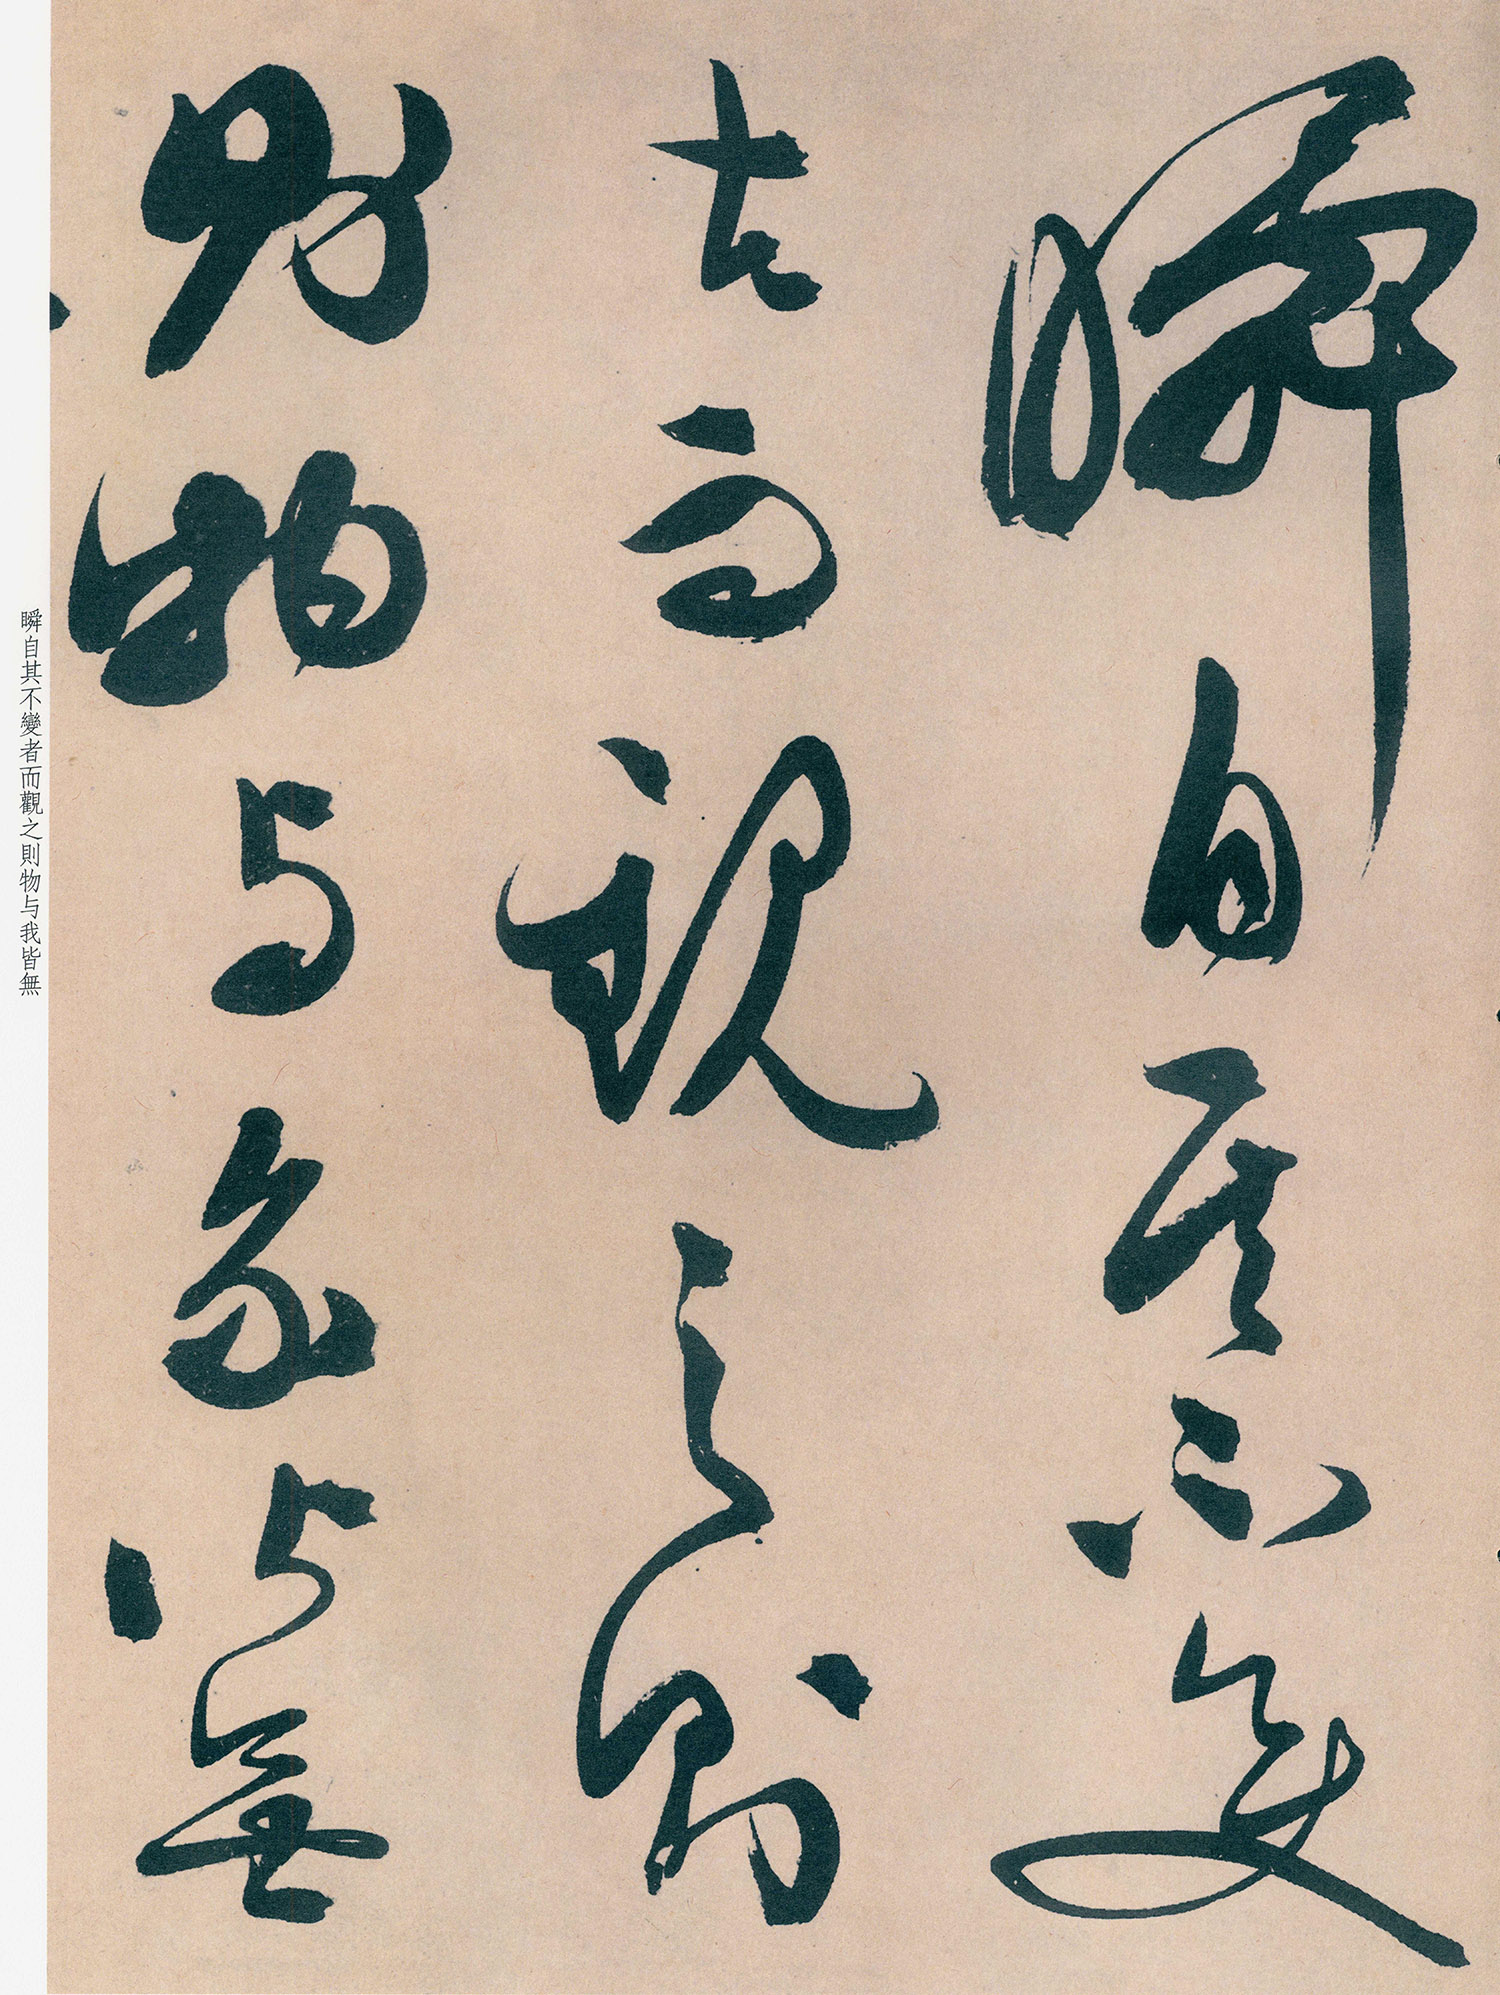 瞬自其不變
者而觀之則
則物与我皆無
瞬自其不變者而觀之則物与我皆無